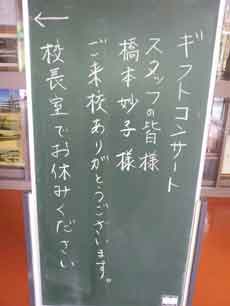 ギフトコンサート
スタッフの皆様
橋本妙子様
ご来校ありがとうございます。
校長室でお休みください